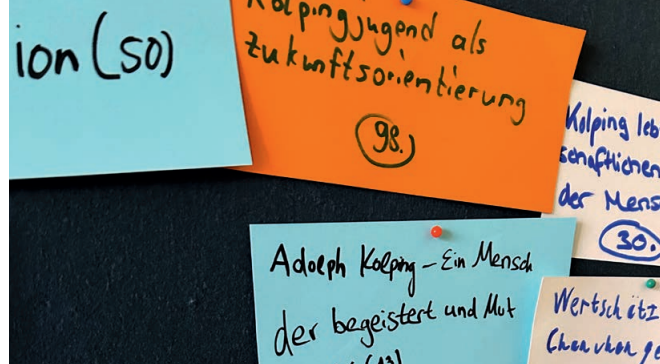 ion (50)
Kolpingjugend als
Zukunftsorientierung
98.
Kolping leb
schaftlichen
der Mens
30.
Adolph Kolping – Ein Mensch
der begeistert und Mut
Wertschätz